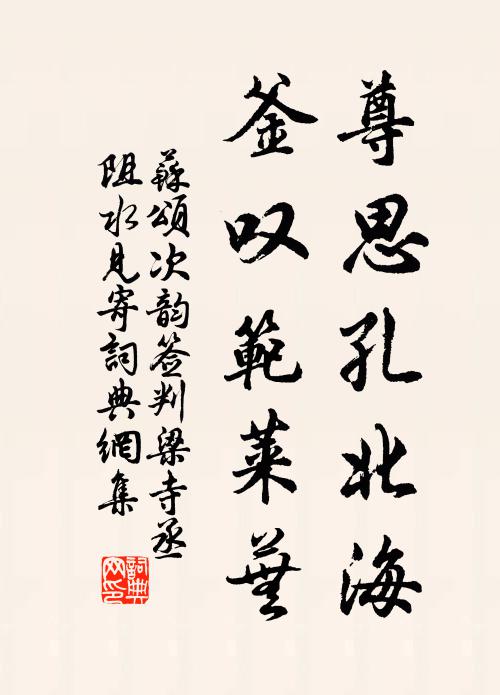 尊思孔北海
釜叹範萊蕪
蘇頌次韵签判梁寺丞
阻水見寄詞典網集
詞典
网印